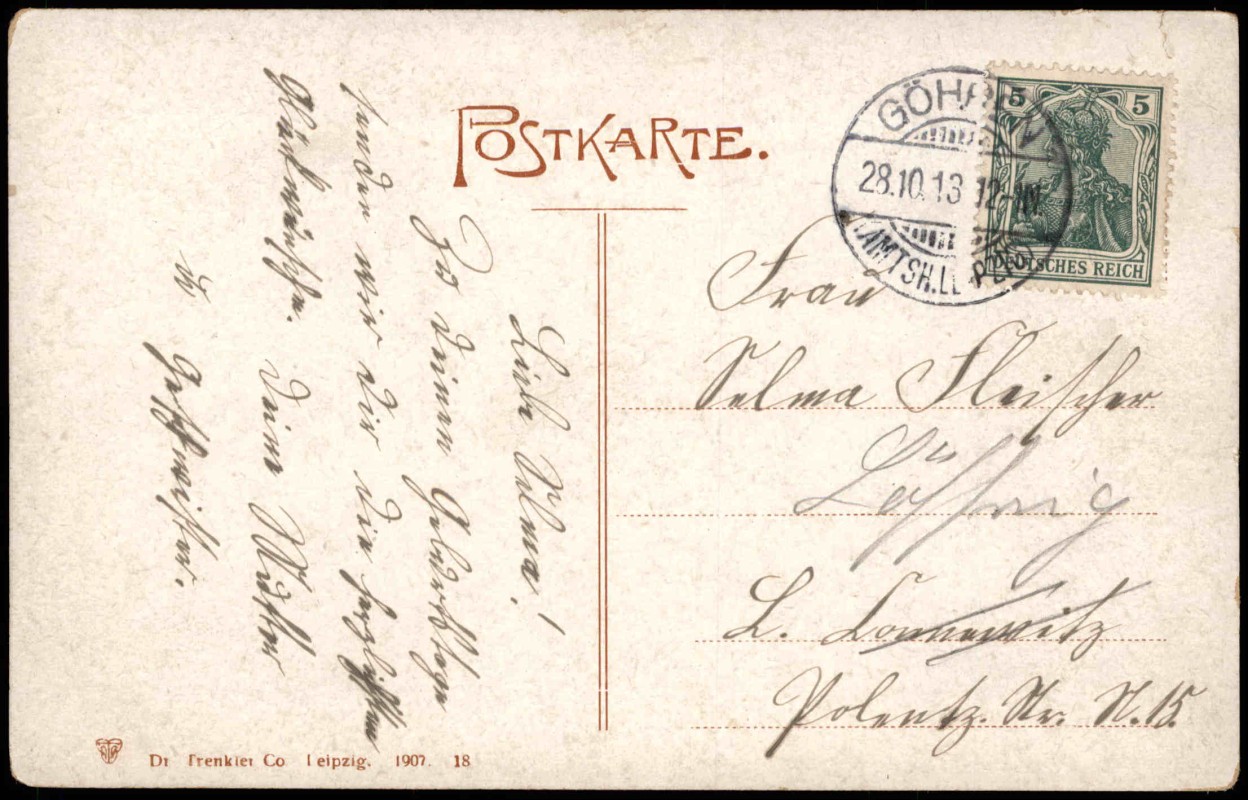 POSTKARTE.
5 5
DEUTSCHES REICH
28.10.13 12-
(AMTSH.LEIPZIG)
Liebe Selma!
Zu deinen Geburtstage
senden wir dir die herzlichsten
Glückwünsche. Deine Mutter
u Geschwister.
Frau
Selma Fleischer
Lößnig
L. Connewitz
Polentz. Str. N. 15.
Dr Trenkler Co Leipzig. 1907. 18